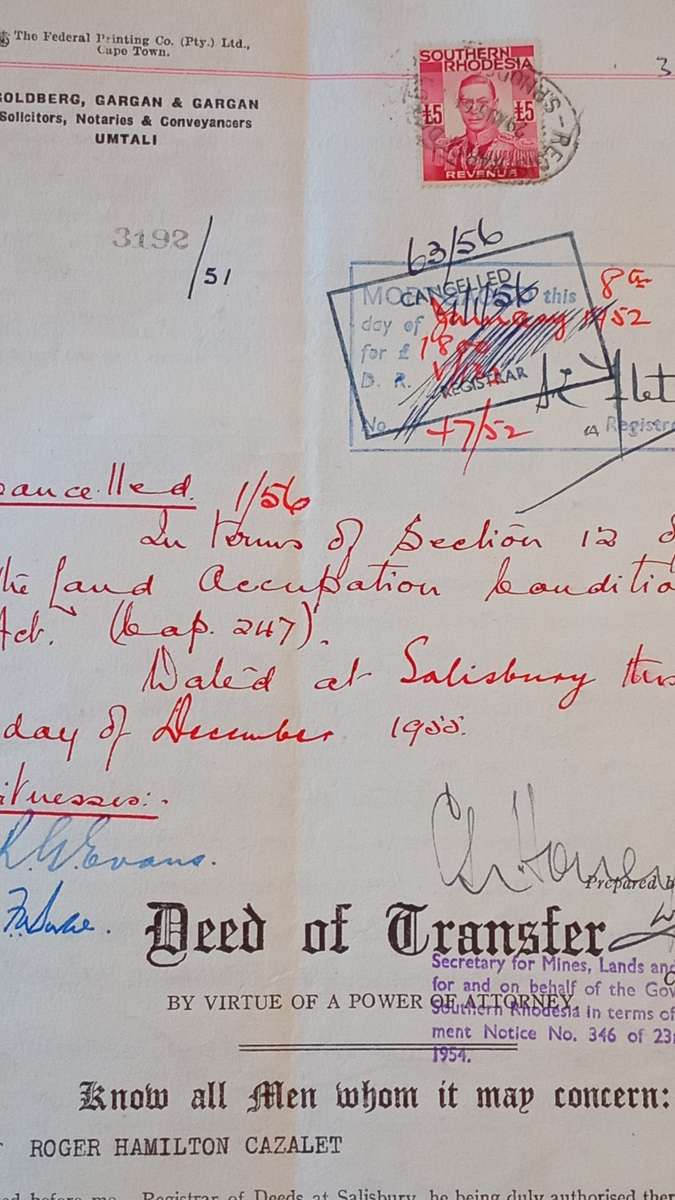 The Federal Printing Co. (Pty.) Ltd.,
Cape Town.
GOLDBERG, GARGAN & GARGAN
Solicitors, Notaries & Conveyancers
UMTALI
SOUTHERN
RHODESIA
£5 £5
REVENUE
3
3192/51
63/56
CANCELLED
REGISTRAR
this 8th
day of January 1952
for £ 1800
D. R.
No 47/52
Registr
Cancelled. 1/56
In terms of Section 12 o
the Land Occupation Conditio
Act. (Cap. 247).
Dated at Salisbury this
day of December 1955.
Witnesses:-
Evans.
Prepared b
Deed of Transfer
Secretary for Mines, Lands and
for and on behalf of the Gov
BY VIRTUE OF A POWER OF ATTORNEY.
Southern Rhodesia in terms of
ment Notice No. 346 of 23r
1954.
Know all Men whom it may concern:
ROGER HAMILTON CAZALET
before me, Registrar of Deeds at Salisbury, he being duly authorised